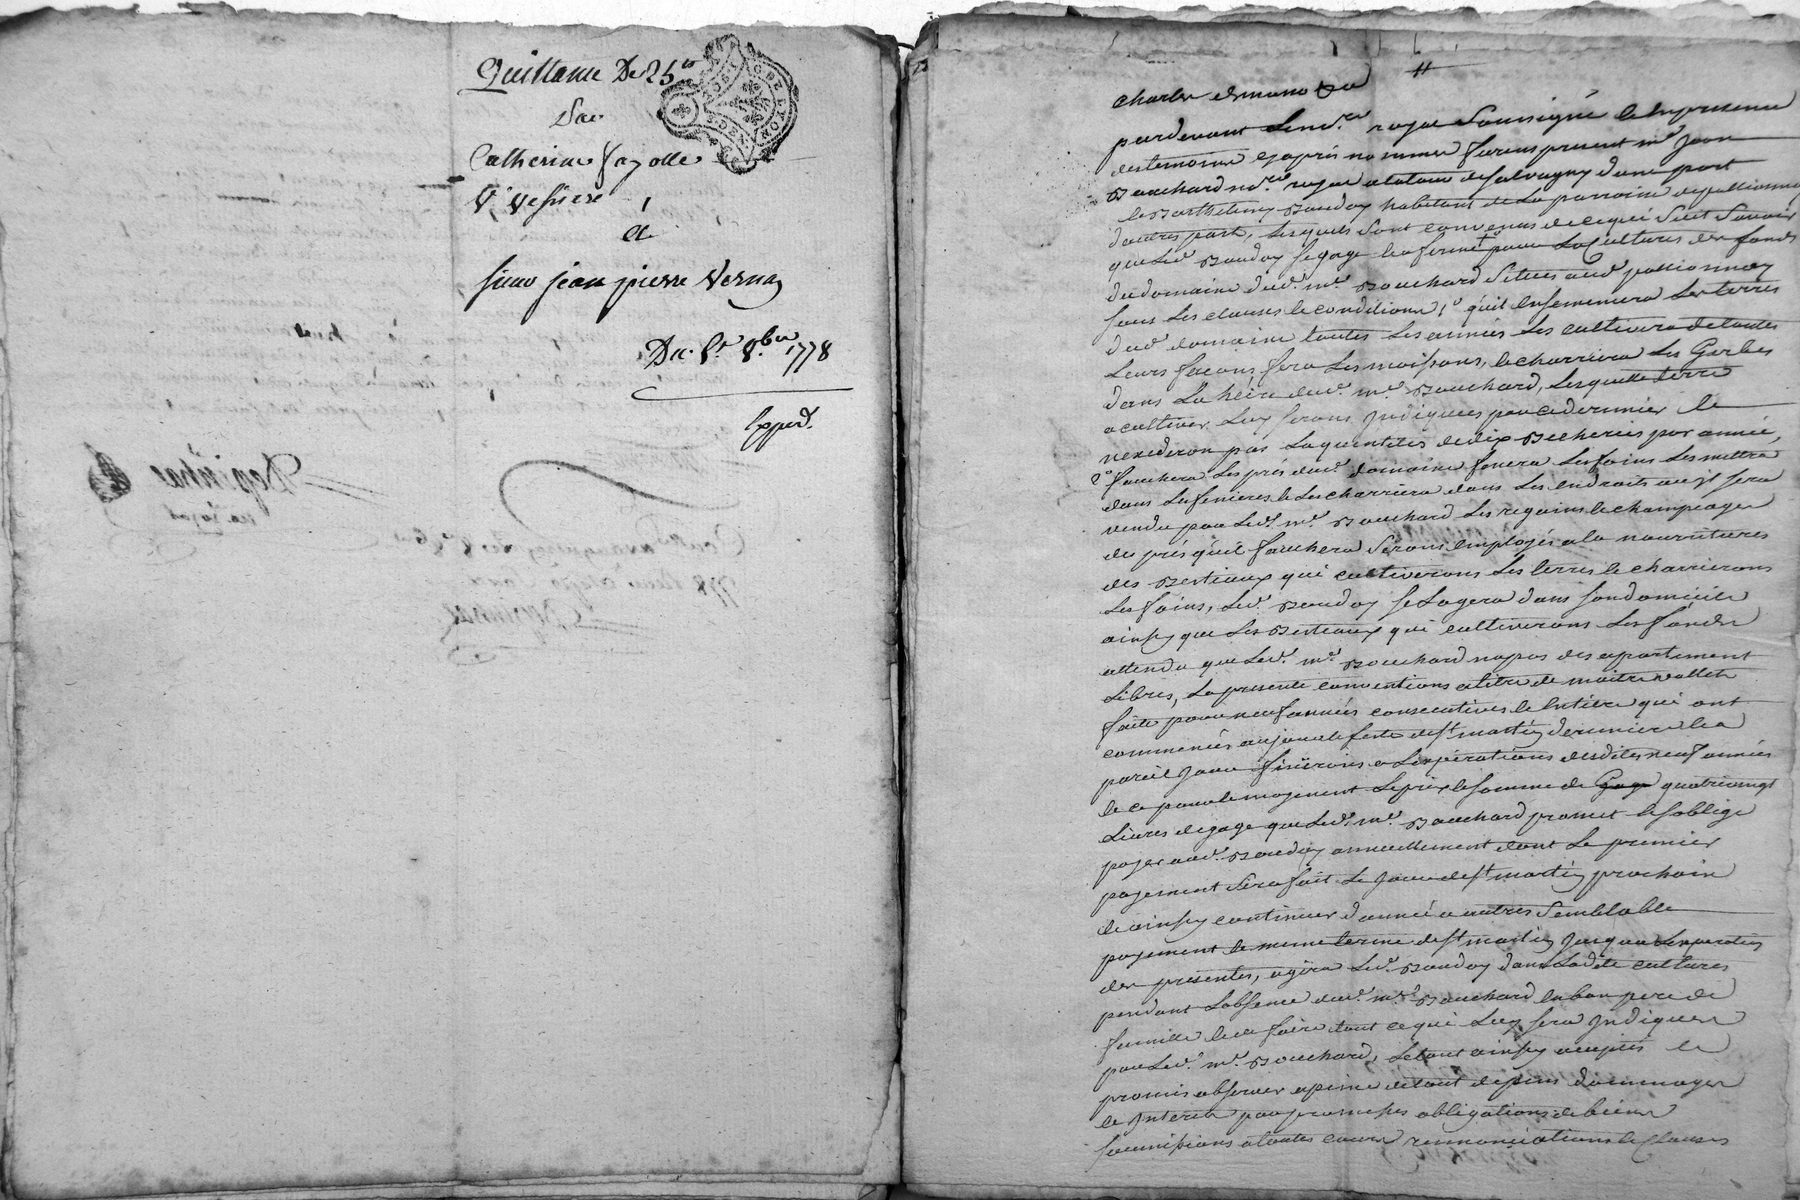 Quittance De 25ᵗᵗ
De
Catherine Fayolle
Vᵉ Vessiere
à
sieur jean pierre Vernay
Du 1ᵉʳ 8.bre 1778
Exped.
pardevant Le no.re royal soussigné et en presence
des temoins cy apres nommés furent present me Jean
Bouchard no.re royal a la tour de salvagny d'une part
et Barthelemy Baudoy habitant de la parroisse de pollionnay
d'autres part, lesquels sont convenus de ce qui suit savoir
que led. Baudoy s'egage et afferme pour la cultures des fonds
du domaine dud. me. Bouchard situés aud. pollionnay
sous les clauses et conditions 1° qu'il ensemencera les terres
dud. domaine toutes les années les cultivera de toutes
leurs façons fera les moissons, et charriera les Gerbes
dans la heire dud. me. Bouchard, lesquelle terre
a cultiver luy seront Indiquées par ce dernier et
n'exederon pas la quantités de dix Bicherées par année,
2° fauchera les prés dud. domaine fenera les foins les mettra
dans les fenieres et les charriera dans les endroits ou il sera
vendu par led. me. Bouchard les regains et champeages
des prés qu'il fauchera seront employés a la nourritures
des Bestiaux qui cultiverons les terres et charrierons
les foins, led. Baudoy se logera dans son domicile
ainsy que les Bestiaux qui cultiverons les fonds
attendu que led. me. Bouchard n'a pas des apartement
libres, la presente conventions a titre de maitre vallet
faite pour neuf années consecutives et entiere qui ont
commencés au jour et feste de st martin dernier et a
pareil jour finirons a l'expirations desdites neuf années
et ce pour et moyenent le prix et somme de quatrevingt
Livres de gage que led. me. Bouchard promet et s'oblige
payer aud. Baudoy annuellement dont le premier
payement sera fait le jour de st martin prochain
et ainsy continuer d'année a autres semblable
payement et meme terme de st martin jusqu'a l'expiration
des presentes, agira led. Baudoy dans ladite cultures
pendant l'absence dud. me. Bouchard en bon pere de
famille et a faire tout ce qui luy sera Indiquer
par led. me. Bouchard, le tout ainsy acceptés et
promis observer a peine de tout depens dommages
et Interets par promesses obligations de biens
soumissions a toutes cours renonciations et clauses